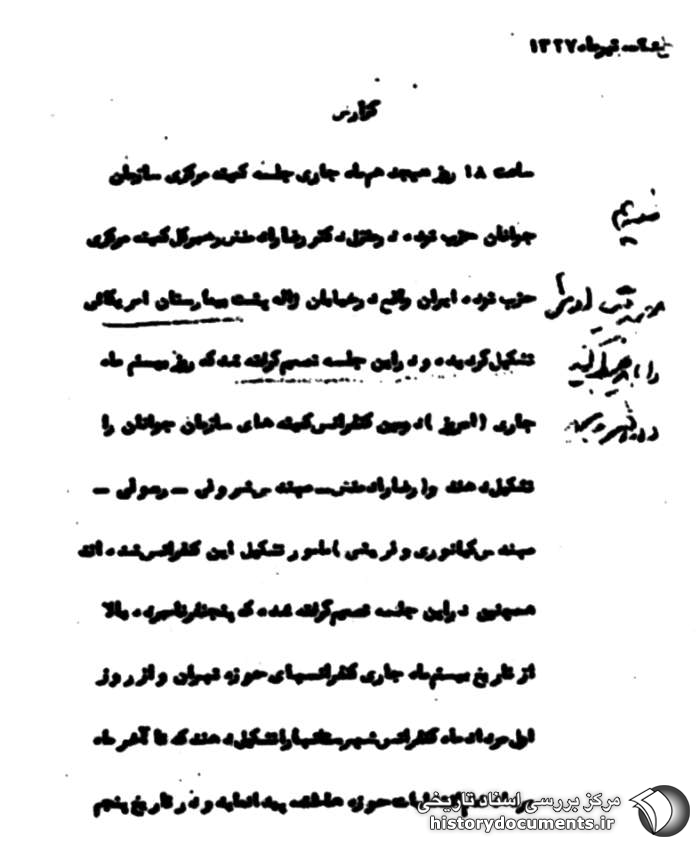 تیرماه ۱۳۲۷
گزارش
ساعت ۱۸ روز هیجدهم ماه جاری جلسه کمیته مرکزی سازمان
جوانان حزب توده در منزل دکتر رضا رادمنش دبیرکل کمیته مرکزی
حزب توده ایران واقع در خیابان ژاله پشت بیمارستان امریکائی
تشکیل گردیده و در این جلسه تصمیم گرفته شد که روز بیستم ماه
جاری (امروز) دومین کنفرانس کمیته های سازمان جوانان را
تشکیل دهند و (رضا رادمنش – مهندس شروئی – رسولی –
مهندس کیانوری و قریشی) مامور تشکیل این کنفرانس شده اند
همچنین در این جلسه تصمیم گرفته شده که پنج نفر نامبرده بالا
از تاریخ بیستم ماه جاری کنفرانسهای حوزه تهران و از روز
اول مرداد ماه کنفرانس شهرستانها را تشکیل دهند که تا آخر ماه
مرداد انتخابات حوزه خاتمه پیدا نماید و در تاریخ پنجم
مرکز بررسی اسناد تاریخی
historydocuments.ir